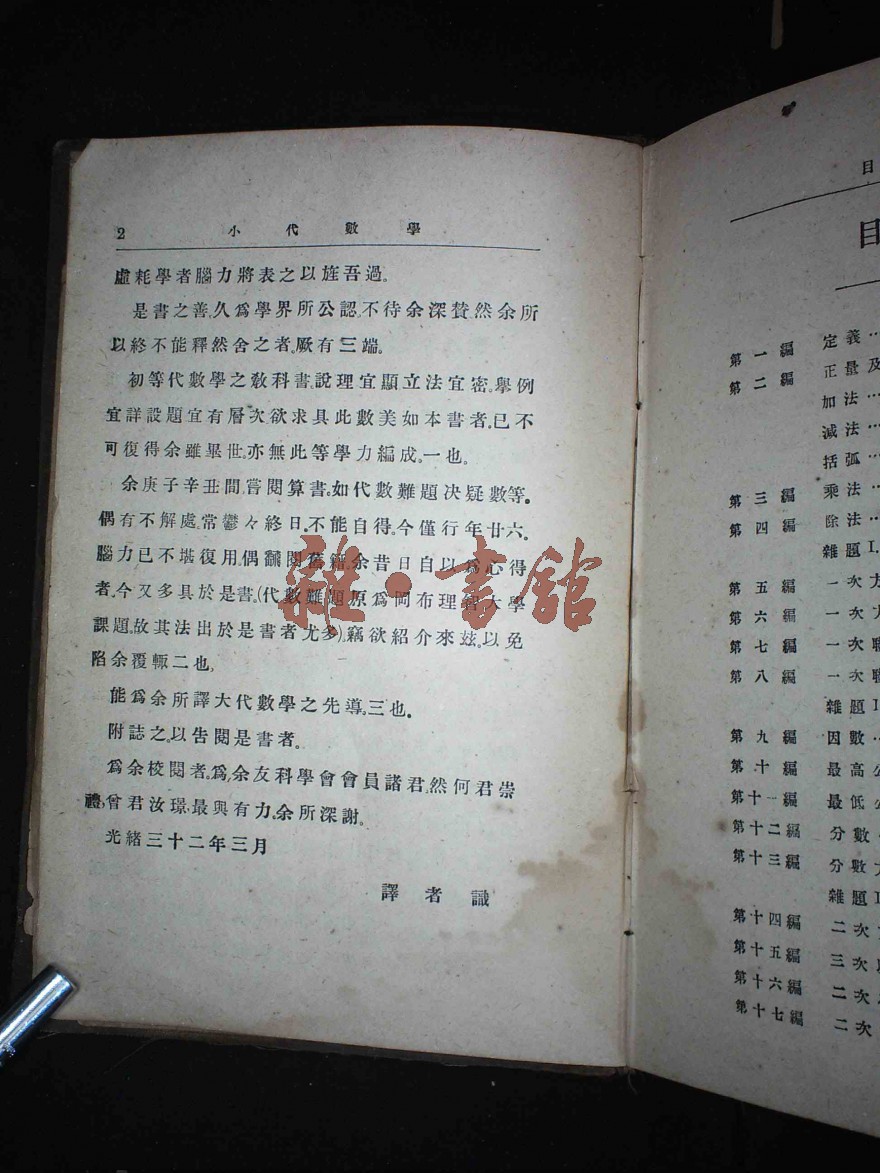 2 小代數學
虛耗學者腦力將表之以旌吾過。
是書之善,久爲學界所公認,不待余深贊,然余所
以終不能釋然舍之者,厥有三端。
初等代數學之敎科書,說理宜顯立法宜密,舉例
宜詳設題宜有層次欲求具此數美如本書者,已不
可復得余雖畢世,亦無此等學力編成。一也。
余庚子辛丑間嘗閱算書,如代數難題決疑數等。
偶有不解處,常鬱々終日,不能自得。今僅行年廿六,
腦力已不堪復用,偶飜閱舊籍,余昔日自以爲心得
者,今又多具於是書。(代數難題原爲岡布理智大學
課題,故其法出於是書者尤多)竊欲紹介來玆,以免
陷余覆轍二也,
能爲余所譯大代數學之先導。三也。
附誌之,以告閱是書者。
爲余校閱者,爲余友科學會會員諸君,然何君崇
禮,曾君汝璟,最與有力,余所深謝。
光緒三十二年三月
譯者識
目
目
第一編 定義…
第二編 正量及
加法…
減法…
括弧…
第三編 乘法…
第四編 除法…
雜題I.
第五編 一次方
第六編 一次方
第七編 一次聯
第八編 一次
雜題I
第九編 因數…
第十編 最高公
第十一編 最低公
第十二編 分數
第十三編 分數方
雜題I
第十四編 二次
第十五編 三次
第十六編 二次
第十七編 二次
雜·書館